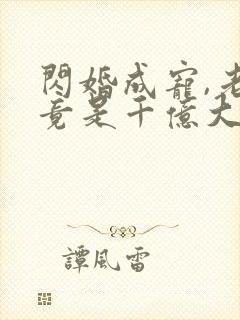 閃婚成寵,老
竟是千億大
譚風雷